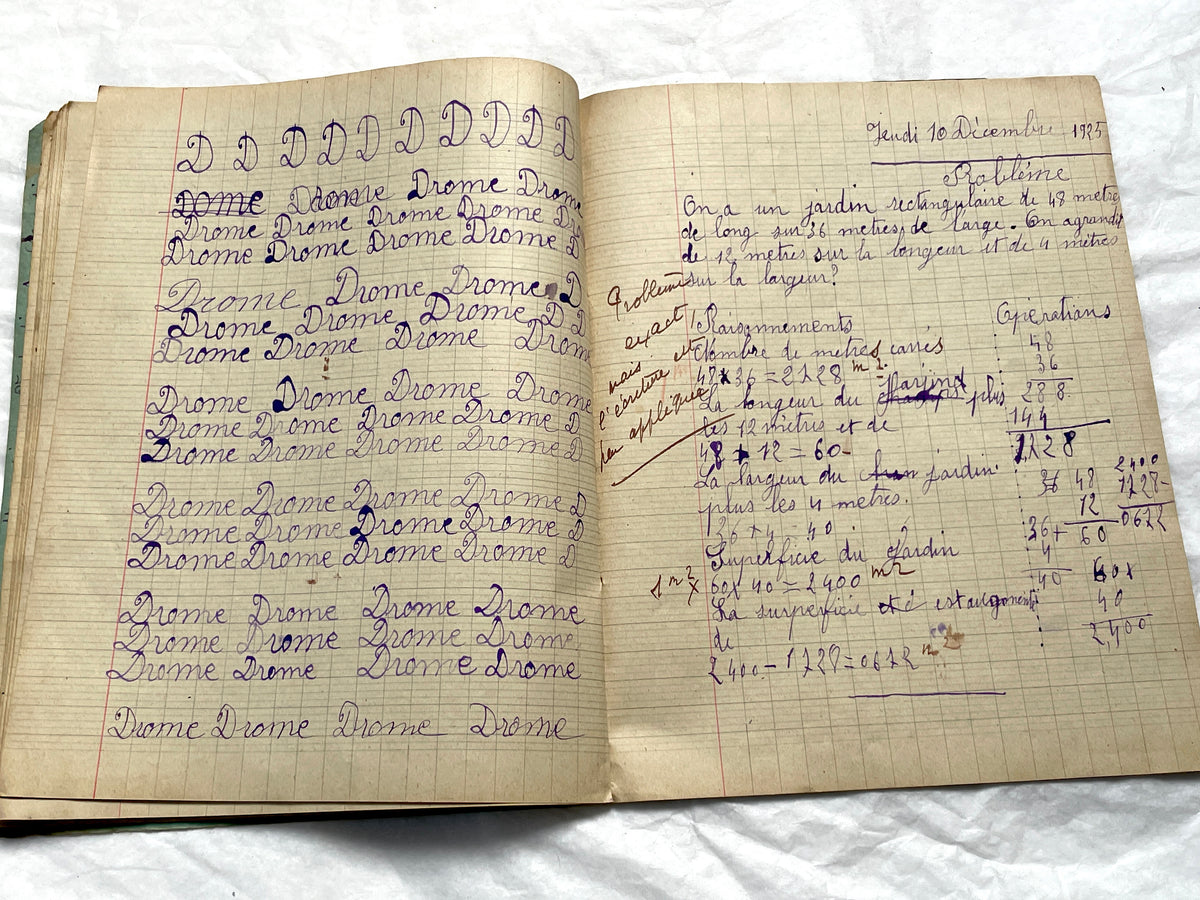 D D D D D D D D D D
Drome Drome Drome Drome
Drome Drome Drome Drome Dro
Drome Drome Drome Drome D
Drome Drome Drome D
Drome Drome Drome Drome D D
Drome Drome Drome Drome
Drome Drome Drome Drome
Drome Drome Drome Drome D
Drome Drome Drome Drome D
Drome Drome Drome Drome D
Drome Drome Drome Drome D
Drome Drome Drome Drome D
Drome Drome Drome Drome
Drome Drome Drome Drome
Drome Drome Drome Drome
Drome Drome Drome Drome
Jeudi 10 Décembre 1925
Problème
On a un jardin rectangulaire de 48 metres
de long sur 36 metres de large. On agrandit
de 12 metres sur la longeur et de 4 metres
sur la largeur?
Problème
exact
mais
l'écriture est
peu appliquée
Raisonnements
Nombre de metres carrés
48 x 36 = 1728 m2
La longeur du jardin plus
les 12 metres et de
48 + 12 = 60
La largeur du jardin
plus les 4 metres.
36 + 4 40
Superficie du Jardin
1 m2 x
60 x 40 = 2400 m2
La surperficie est augmenté
de
2400 - 1728 = 0672 m2
Opérations
48
36
288
144
1728
36 48 2400
12 1728-
36+ 60 0672
4
40 60x
40
2400